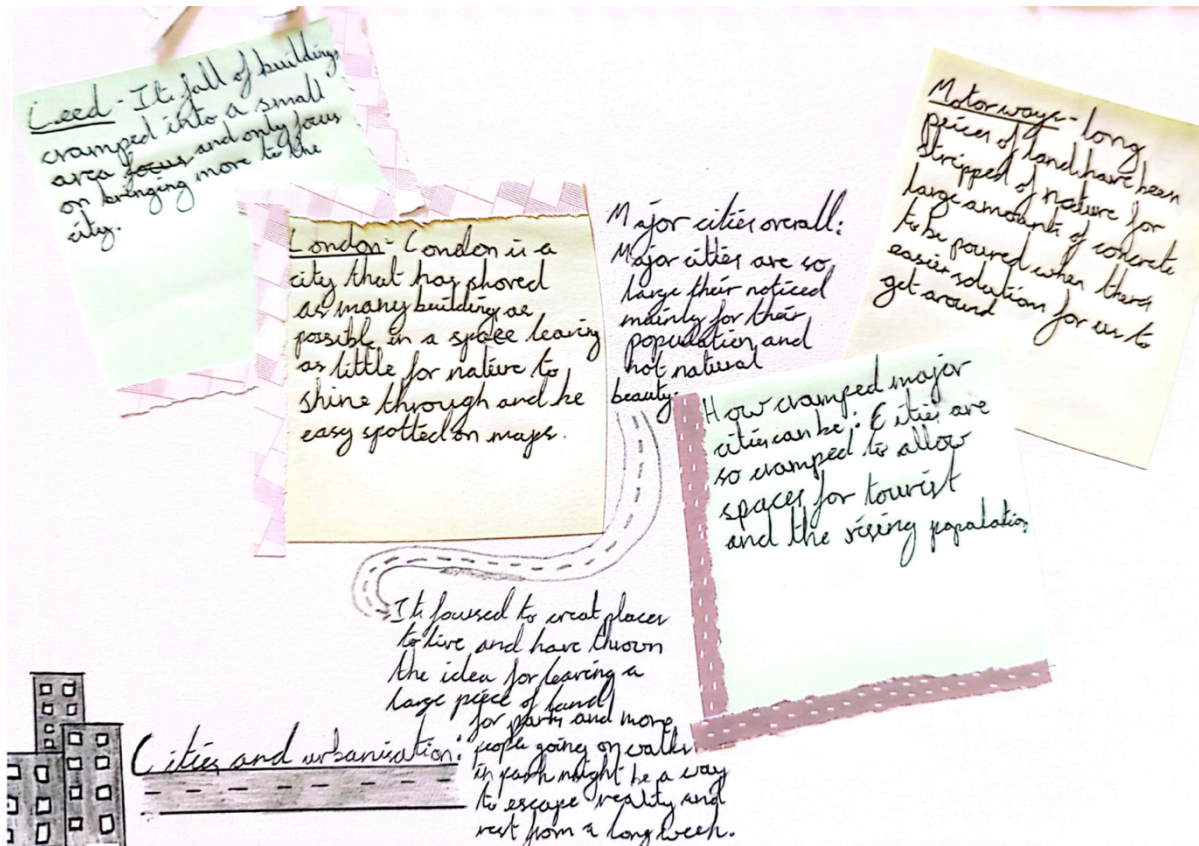 Leed - Its full of buildings
cramped into a small
area focus and only focus
on bringing more to the
city.
London - London is a
city that has shoved
as many building as
possible in a space leaving
as little for nature to
shine through and be
easy spotted on maps.
Major cities overall:
Major cities are so
large their noticed
mainly for their
population and
not natural
beauty.
Motorways - long
peices of land have been
stripped of nature for
large amounts of concrete
to be poured when theres
easier solution for us to
get around
How cramped major
cities can be: Cities are
so cramped to allow
spaces for tourist
and the rising population
Its foused to creat places
to live and have thrown
the idea for leaving a
large peice of land
for parks and more
people going on walks
in park might be a way
to escape reality and
rest from a long week.
Cities and urbanisation: